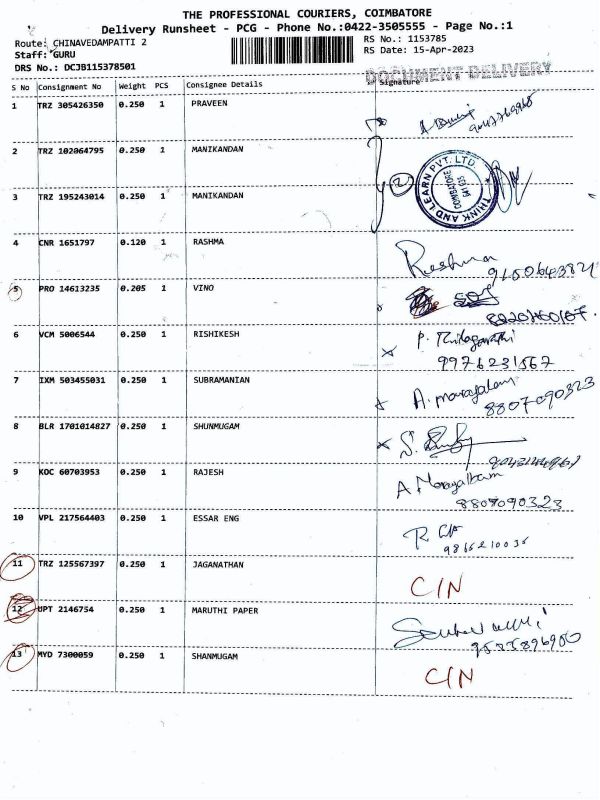 THE PROFESSIONAL COURIERS, COIMBATORE
Delivery Runsheet - PCG - Phone No.:0422-3505555 - Page No.:1
Route: CHINAVEDAMPATTI 2
RS No.: 1153785
Staff: GURU
RS Date: 15-Apr-2023
DRS No.: DCJB115378501
DOCUMENT DELIVERY
S No Consignment No Weight PCS Consignee Details Signature
1 TRZ 305426350 0.250 1 PRAVEEN
2 TRZ 102064795 0.250 1 MANIKANDAN
3 TRZ 195243014 0.250 1 MANIKANDAN
2
THINK AND LEARN PVT. LTD.
COIMBATORE
4 CNR 1651797 0.120 1 RASHMA
Reshma
9150643821
5 PRO 14613235 0.205 1 VINO
6 VCM 5006544 0.250 1 RISHIKESH
P. Thilagavathi
9976231567
7 IXM 503455031 0.250 1 SUBRAMANIAN
8807090323
8 BLR 1701014827 0.250 1 SHUNMUGAM
9 KOC 60703953 0.250 1 RAJESH
8807090323
10 VPL 217564403 0.250 1 ESSAR ENG
11 TRZ 125567397 0.250 1 JAGANATHAN
C/N
12 UPT 2146754 0.250 1 MARUTHI PAPER
13 MYD 7300059 0.250 1 SHANMUGAM
C/N